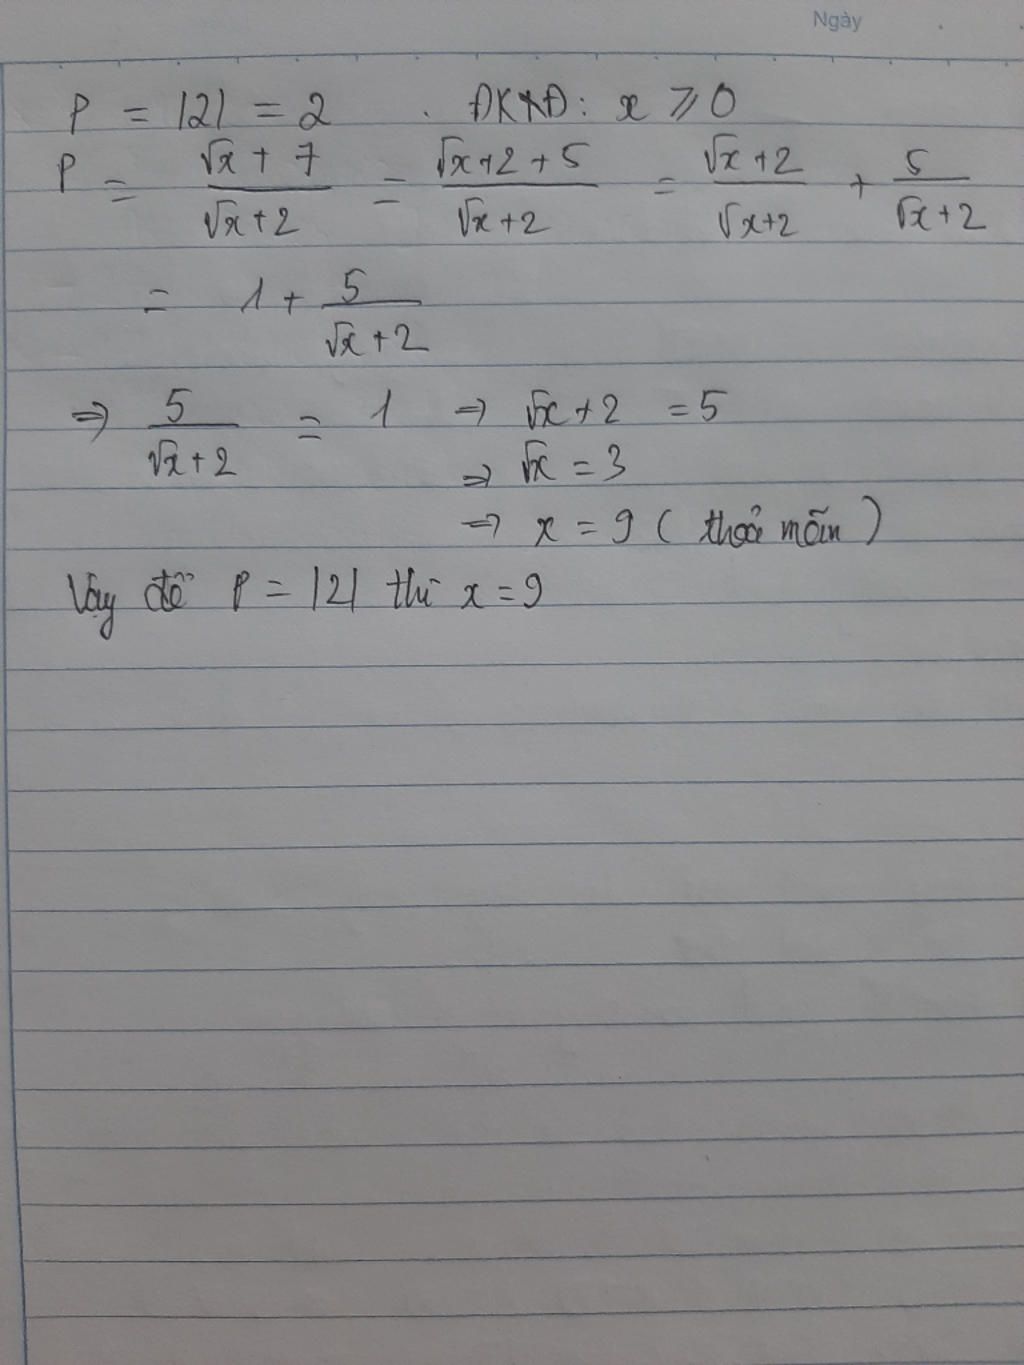 Ngày
P = |2| = 2 . ĐKXĐ: x ⩾ 0
P = (√x + 7)/(√x + 2) = (√x + 2 + 5)/(√x + 2) = (√x + 2)/(√x + 2) + 5/(√x + 2)
= 1 + 5/(√x + 2)
⇒ 5/(√x + 2) = 1 ⇒ √x + 2 = 5
⇒ √x = 3
⇒ x = 9 ( thoả mãn )
Vậy để P = |2| thì x = 9